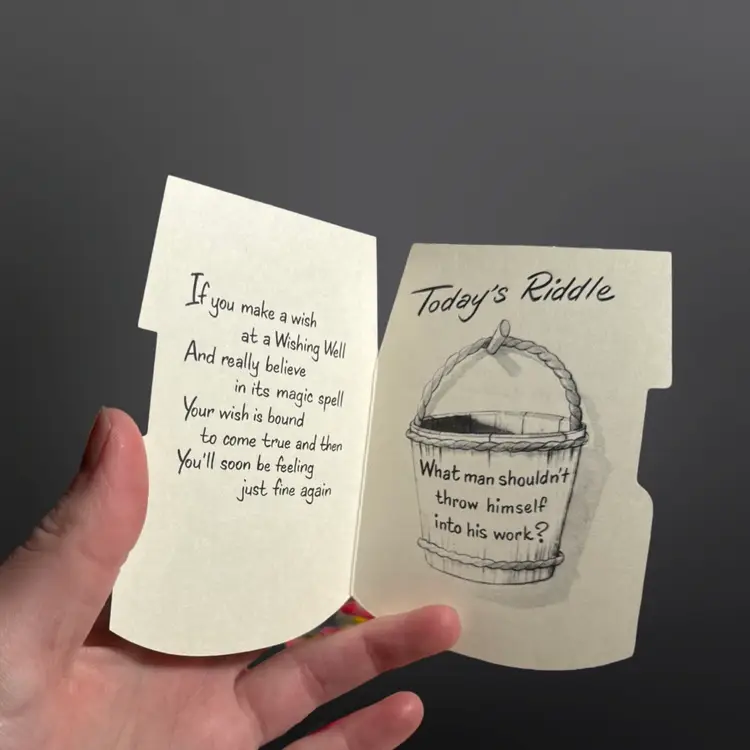 If you make a wish
at a Wishing Well
And really believe
in its magic spell
Your wish is bound
to come true and then
You'll soon be feeling
just fine again
Today's Riddle
What man shouldn't
throw himself
into his work?